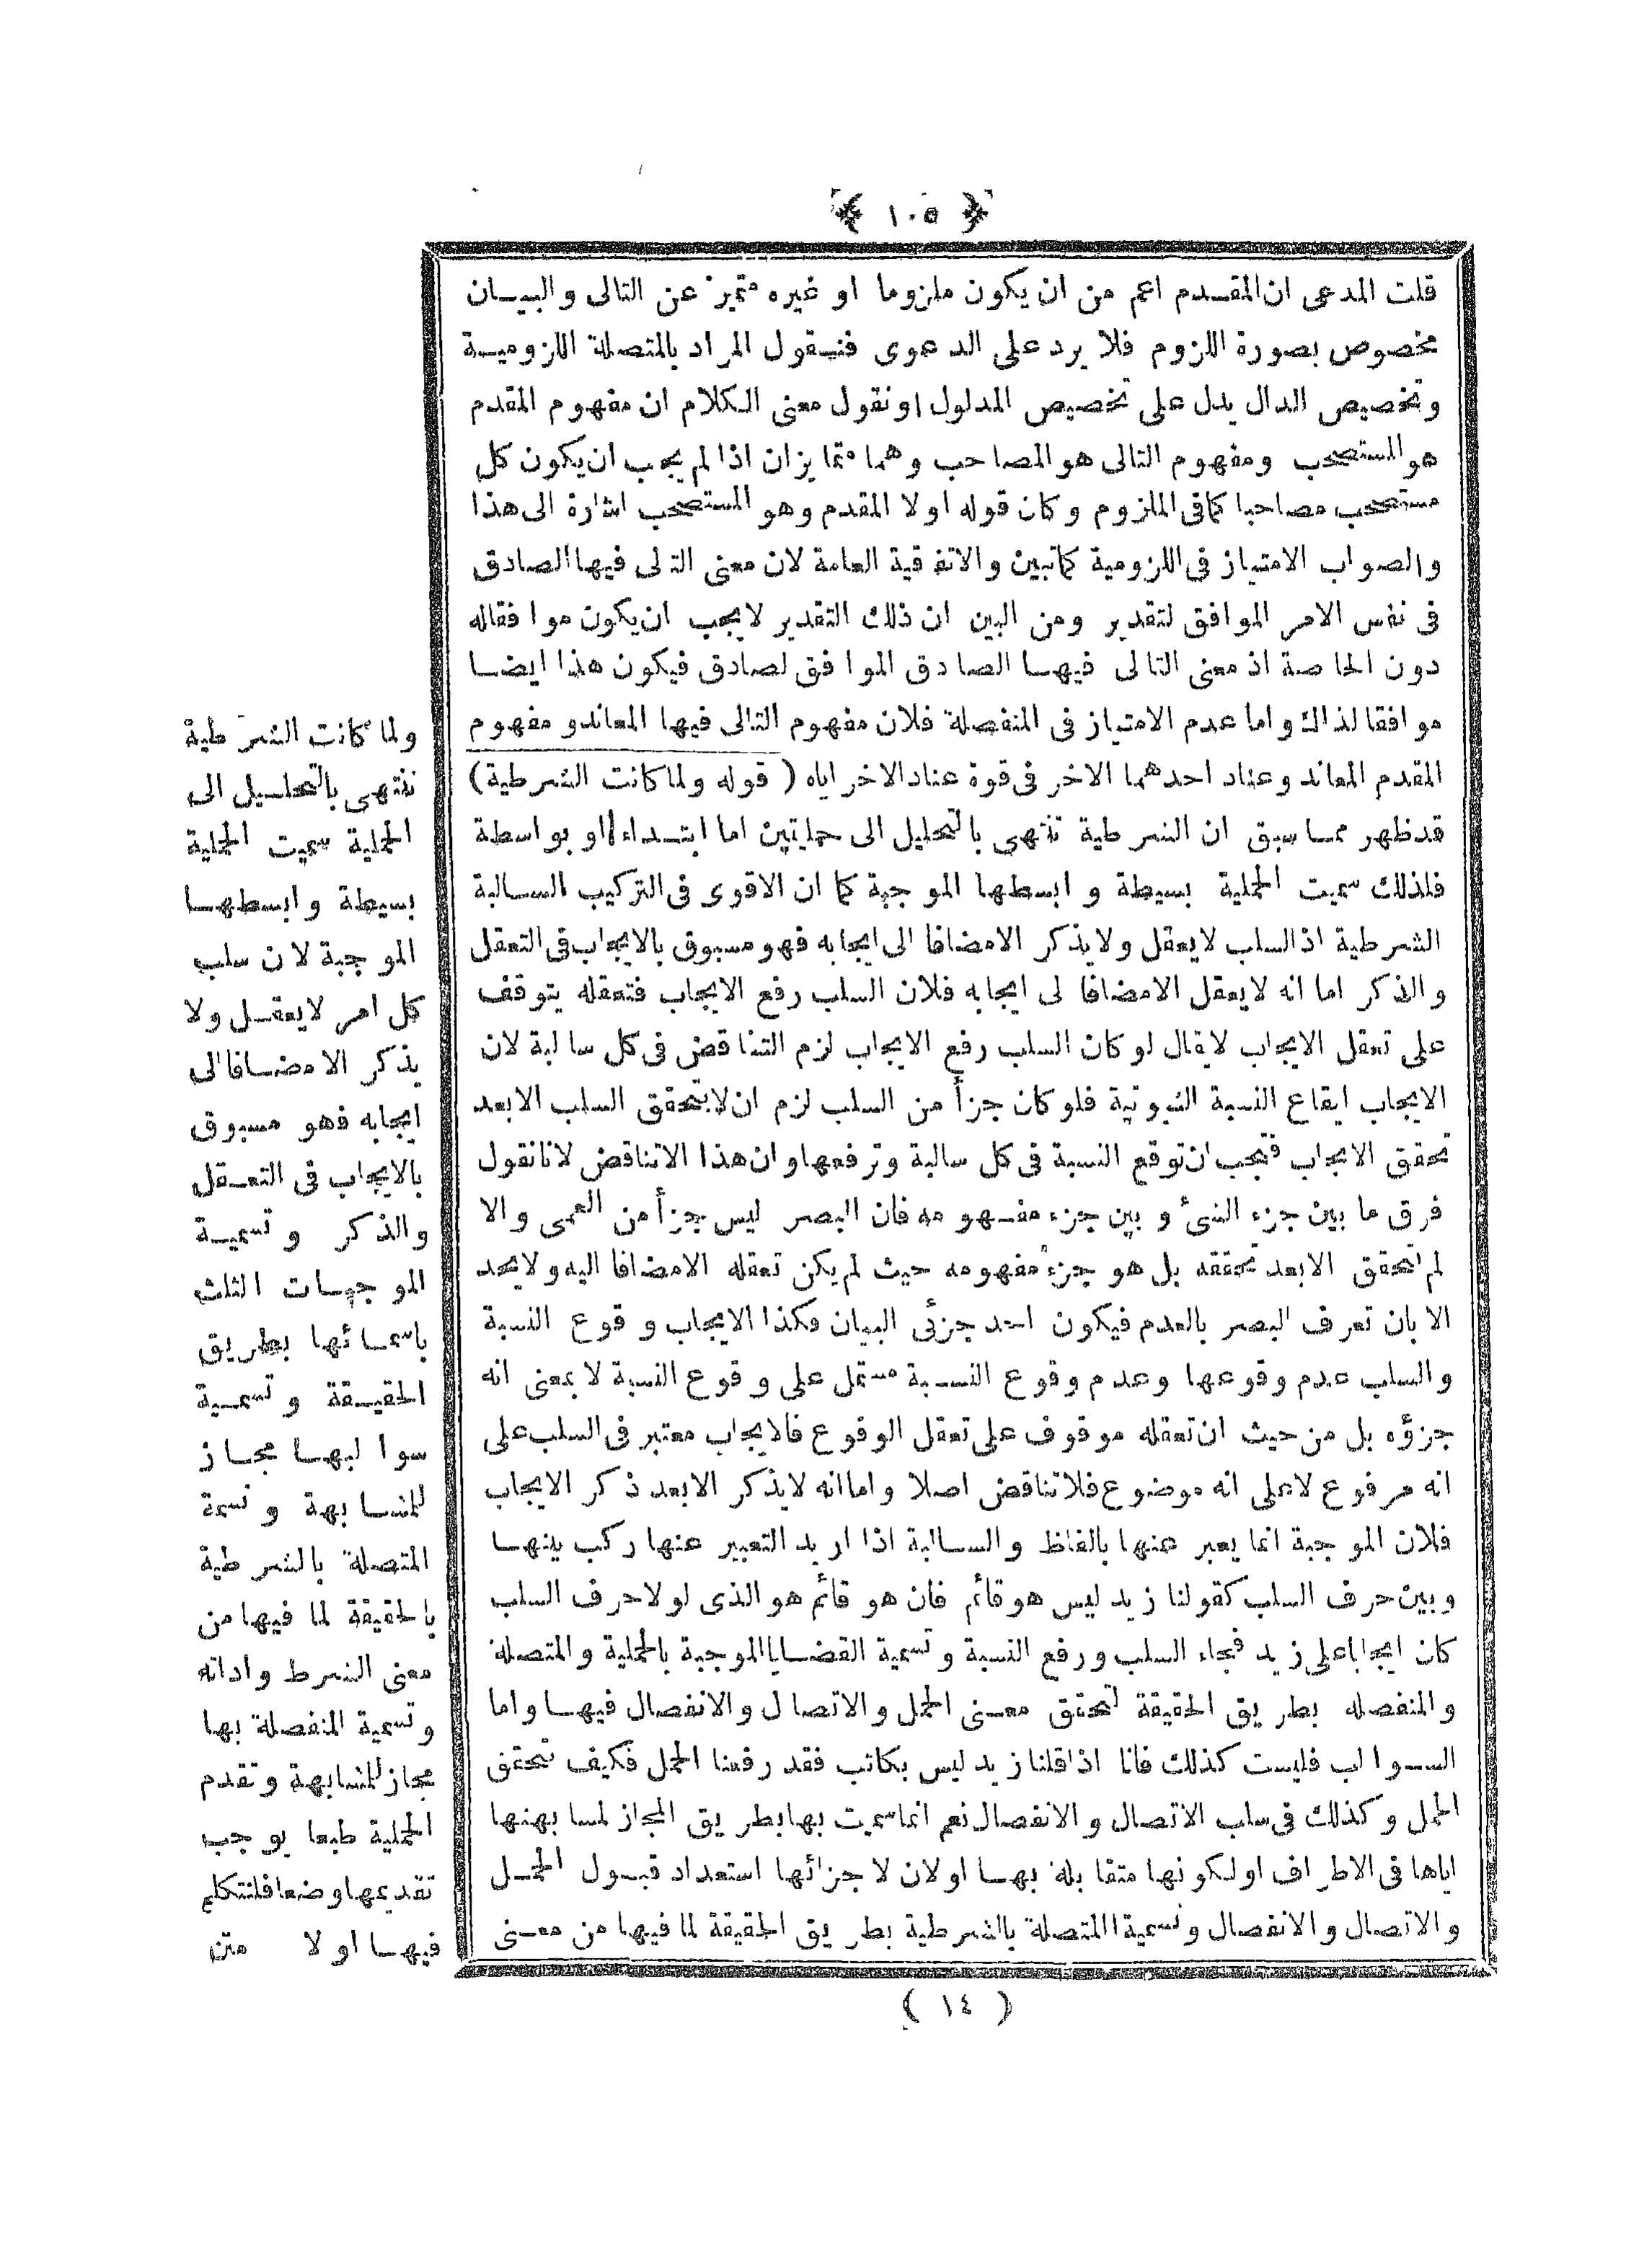 ﴿ ١٠٥ ﴾
قلت المدعى ان المقدم اعم من ان يكون ملزوما او غيره متميز عن التالى والبيان
مخصوص بصورة اللزوم فلا يرد على الدعوى فنقول المراد بالمتصلة اللزومية
وتخصيص الدال يدل على تخصيص المدلول او نقول معنى الكلام ان مفهوم المقدم
هو المستصحب ومفهوم التالى هو المصاحب وهما متمايزان اذا لم يجب ان يكون كل
مستصحب مصاحبا كما فى الملزوم وكان قوله اولا المقدم وهو المستصحب اشارة الى هذا
والصواب الامتياز فى اللزومية كما تبين والاتفقية العامة لان معنى التلى فيها الصادق
فى نفس الامر الموافق لتقدير ومن البين ان ذلك التقدير لا يجب ان يكون موافقاله
دون الخاصة اذ معنى التالى فيها الصادق الموافق لصادق فيكون هذا ايضا
موافقا لذاك واما عدم الامتياز فى المنفصلة فلان مفهوم التالى فيها المعاند ومفهوم
المقدم المعاند وعناد احدهما الاخر فى قوة عناد الاخر اياه ( قوله ولما كانت الشرطية )
قد ظهر مما سبق ان الشرطية تنتهى بالتحليل الى حمليتين اما ابتداء او بواسطة
فلذلك سميت الحملية بسيطة وابسطها الموجبة كما ان الاقوى فى التركيب السالبة
الشرطية اذ السلب لا يعقل ولا يذكر الا مضافا الى ايجابه فهو مسبوق بالايجاب فى التعقل
والذكر اما انه لا يعقل الا مضافا لى ايجابه فلان السلب رفع الايجاب فتعقله يتوقف
على تعقل الايجاب لا يقال لو كان السلب رفع الايجاب لزم التناقض فى كل سالبة لان
الايجاب ايقاع النسبة الثبوتية فلو كان جزأ من السلب لزم ان لا يتحقق السلب الا بعد
تحقق الايجاب فيجب ان توقع النسبة فى كل سالبة وترفعها وان هذا الا تناقض لانا نقول
فرق ما بين جزء الشئ وبين جزء مفهومه فان البصر ليس جزأ من العمى والا
لم تتحقق الا بعد تحققه بل هو جزء مفهومه حيث لم يكن تعقله الا مضافا اليه ولا يحد
الا بان تعرف البصر بالعدم فيكون احد جزئى البيان فكذا الايجاب وقوع النسبة
والسلب عدم وقوعها وعدم وقوع النسبة مشتمل على وقوع النسبة لا بمعنى انه
جزؤه بل من حيث ان تعقله موقوف على تعقل الوقوع فالايجاب معتبر فى السلب على
انه مرفوع لا على انه موضوع فلا تناقض اصلا واما انه لا يذكر الا بعد ذكر الايجاب
فلان الموجبة انما يعبر عنها بالفاظ والسالبة اذا اريد التعبير عنها ركب بينها
وبين حرف السلب كقولنا زيد ليس هو قائم فان هو قائم هو الذى لولا حرف السلب
كان ايجابا على زيد فجاء السلب ورفع النسبة وتسمية القضايا الموجبة بالحملية والمتصلة
والمنفصله بطريق الحقيقة لتحقق معنى الحمل والاتصال والانفصال فيها واما
السوالب فليست كذلك فانا اذا قلنا زيد ليس بكاتب فقد رفعنا الحمل فكيف تتحقق
الحمل وكذلك فى سلب الاتصال والانفصال نعم انما سميت بها بطريق المجاز لمشابهتها
اياها فى الاطراف او لكونها متقابلة بها او لان لاجزائها استعداد قبول الحمل
والاتصال والانفصال وتسمية المتصلة بالشرطية بطريق الحقيقة لما فيها من معنى
ولما كانت الشرطية
تنتهى بالتحليل الى
الحملية سميت الحملية
بسيطة وابسطها
الموجبة لان سلب
كل امر لا يعقل ولا
يذكر الا مضافا الى
ايجابه فهو مسبوق
بالايجاب فى التعقل
والذكر وتسمية
الموجبات الثلث
باسمائها بطريق
الحقيقة وتسمية
سوالبها مجاز
للمشابهة وتسمة
المتصلة بالشرطية
بالحقيقة لما فيها من
معنى الشرط واداته
وتسمية المنفصلة بها
مجاز للمشابهة وتقدم
الحملية طبعا يوجب
تقديمها وضعا فلنتكلم
فيها اولا متن
( ١٤ )